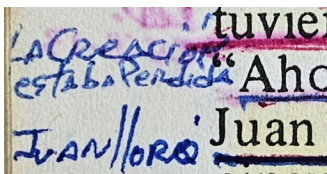 LA CREACIÓN
estaba Perdida
JUAN lloró
tuvier
“Aho
Juan